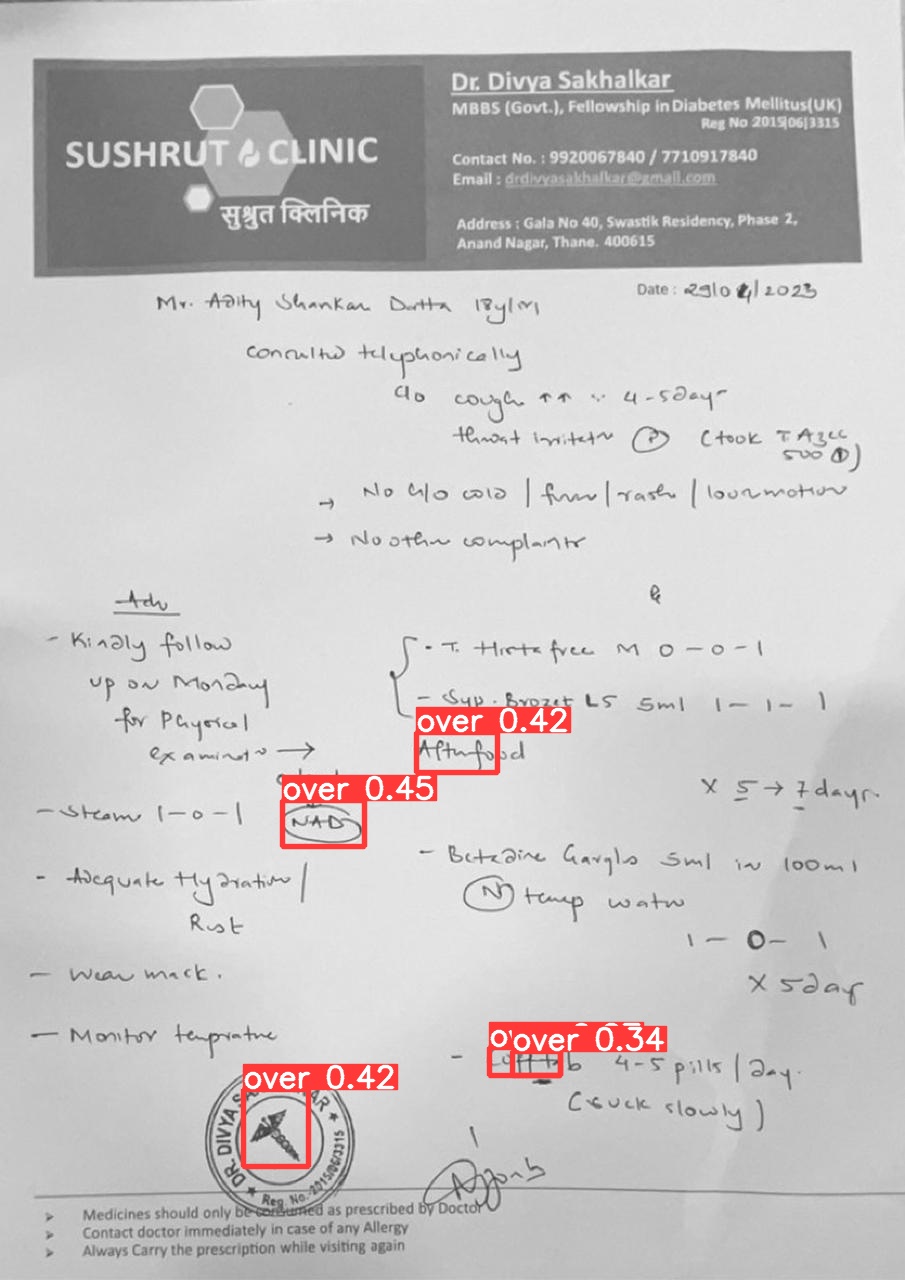 SUSHRUT CLINIC
सुश्रुत क्लिनिक
Dr. Divya Sakhalkar
MBBS (Govt.), Fellowship in Diabetes Mellitus(UK)
Reg No 2015|06|3315
Contact No. : 9920067840 / 7710917840
Email : drdivyasakhalkar@gmail.com
Address : Gala No 40, Swastik Residency, Phase 2,
Anand Nagar, Thane. 400615
Date : 29/04/2023
Mr. Adity Shankar Dutta 18y/m
Consulted telephonically
c/o cough ↑↑ 4-5 days
throat irritatn (P) (took T Azee
500 ①)
→ No c/o cold / fever / rash / loosemotion
→ No other complaints
Adv
- Kindly follow
up on Monday
for Physical
examinatn →
NAD
over 0.45
- Steam 1-0-1
- Adequate Hydration /
Rest
- Wear mask.
- Monitor temprature
- T. Histafree M 0-0-1
- Syp. Brozet LS 5ml 1-1-1
over 0.42
After food
x 5 → 7 days.
- Betadine Gargles 5ml in 100ml
(N) temp water
1-0-1
x 5 day
over 0.34
- 4-5 pills / day.
(suck slowly)
over 0.42
DR. DIVYA
Reg. No.-2015/06/3315
Medicines should only be consumed as prescribed by Doctor
Contact doctor immediately in case of any Allergy
Always Carry the prescription while visiting again